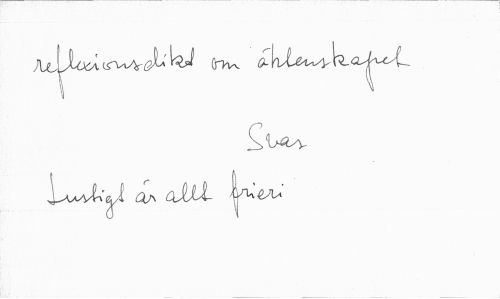 reflexionsdikt om äktenskapet
Svar
Lustigt är allt frieri